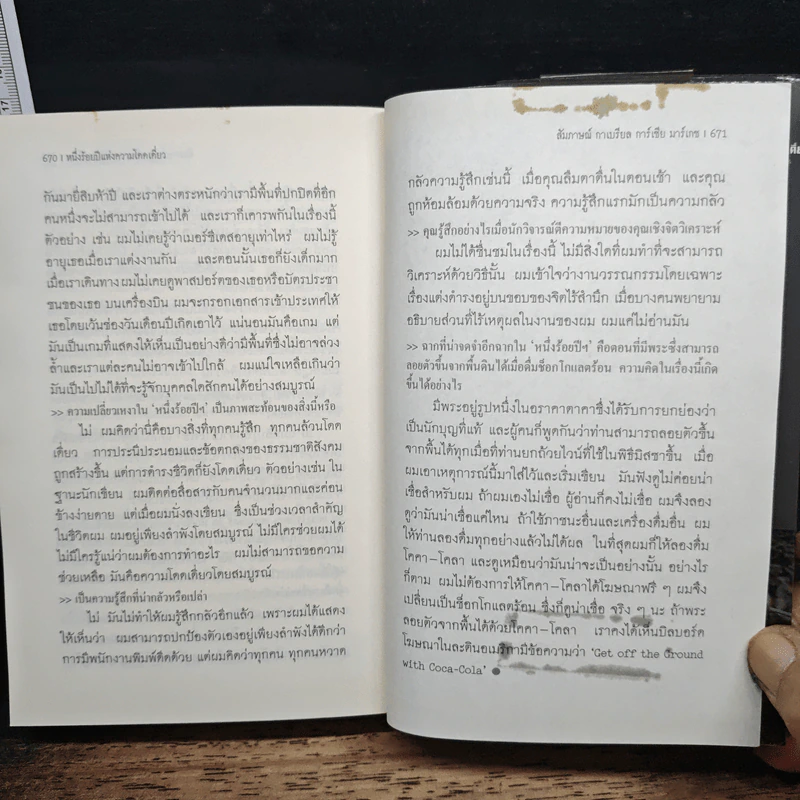 670 | หนึ่งร้อยปีแห่งความโดดเดี่ยว
กันมายี่สิบห้าปี และเราต่างตระหนักว่าเรามีพื้นที่ปกปิดที่อีก
คนหนึ่งจะไม่สามารถเข้าไปได้ และเราก็เคารพกันในเรื่องนี้
ตัวอย่าง เช่น ผมไม่เคยรู้ว่าเมอร์ซิเดสอายุเท่าไหร่ ผมไม่รู้
อายุเธอเมื่อเราแต่งงานกัน และตอนนั้นเธอก็ยังเด็กมาก
เมื่อเราเดินทาง ผมไม่เคยดูพาสปอร์ตของเธอหรือบัตรประชา
ชนของเธอ บนเครื่องบิน ผมจะกรอกเอกสารเข้าประเทศให้
เธอโดยเว้นช่องวันเดือนปีเกิดเอาไว้ แน่นอนมันคือเกม แต่
มันเป็นเกมที่แสดงให้เห็นเป็นอย่างดีว่ามีพื้นที่ซึ่งไม่อาจล่วง
ล้ำและเราแต่ละคนไม่อาจเข้าไปใกล้ ผมแน่ใจเหลือเกินว่า
มันเป็นไปไม่ได้ที่จะรู้จักบุคคลใดสักคนได้อย่างสมบูรณ์
>> ความเปลี่ยวเหงาใน ‘หนึ่งร้อยปีฯ’ เป็นภาพสะท้อนของสิ่งนี้หรือ
ไม่ ผมคิดว่านี่คือบางสิ่งที่ทุกคนรู้สึก ทุกคนล้วนโดด
เดี่ยว การประนีประนอมและข้อตกลงของธรรมชาติสังคม
ถูกสร้างขึ้น แต่การดำรงชีวิตก็ยังโดดเดี่ยว ตัวอย่างเช่น ใน
ฐานะนักเขียน ผมติดต่อสื่อสารกับคนจำนวนมากและค่อน
ข้างง่ายดาย แต่เมื่อผมนั่งลงเขียน ซึ่งเป็นช่วงเวลาสำคัญ
ในชีวิตผม ผมอยู่เพียงลำพังโดยสมบูรณ์ ไม่มีใครช่วยผมได้
ไม่มีใครรู้แน่ว่าผมต้องการทำอะไร ผมไม่สามารถขอความ
ช่วยเหลือ มันคือความโดดเดี่ยวโดยสมบูรณ์
>> เป็นความรู้สึกที่น่ากลัวหรือเปล่า
ไม่ มันไม่ทำให้ผมรู้สึกกลัวอีกแล้ว เพราะผมได้แสดง
ให้เห็นว่า ผมสามารถปกป้องตัวเองอยู่เพียงลำพังได้ดีกว่า
การมีพนักงานพิมพ์ดีดด้วย แต่ผมคิดว่าทุกคน ทุกคนหวาด
สัมภาษณ์ กาเบรียล การ์เซีย มาร์เกซ | 671
กลัวความรู้สึกเช่นนี้ เมื่อคุณลืมตาตื่นในตอนเช้า และคุณ
ถูกห้อมล้อมด้วยความจริง ความรู้สึกแรกมักเป็นความกลัว
>> คุณรู้สึกอย่างไรเมื่อนักวิจารณ์ตีความหมายของคุณเชิงจิตวิเคราะห์
ผมไม่ได้ชื่นชมในเรื่องนี้ ไม่มีสิ่งใดที่ผมทำที่จะสามารถ
วิเคราะห์ด้วยวิธีนั้น ผมเข้าใจว่างานวรรณกรรมโดยเฉพาะ
เรื่องแต่งดำรงอยู่บนขอบของจิตไร้สำนึก เมื่อบางคนพยายาม
อธิบายส่วนที่ไร้เหตุผลในงานของผม ผมแค่ไม่อ่านมัน
>> ฉากที่น่าจดจำอีกฉากใน ‘หนึ่งร้อยปีฯ’ คือตอนที่มีพระซึ่งสามารถ
ลอยตัวขึ้นจากพื้นดินได้เมื่อดื่มช็อกโกแลตร้อน ความคิดในเรื่องนี้เกิด
ขึ้นได้อย่างไร
มีพระอยู่รูปหนึ่งในอราคาตาคาซึ่งได้รับการยกย่องว่า
เป็นนักบุญที่แท้ และผู้คนก็พูดกันว่าท่านสามารถลอยตัวขึ้น
จากพื้นได้ทุกเมื่อที่ท่านยกถ้วยไวน์ที่ใช้ในพิธีมิสซาขึ้น เมื่อ
ผมเอาเหตุการณ์นี้มาใส่ไว้และเริ่มเขียน มันฟังดูไม่ค่อยน่า
เชื่อสำหรับผม ถ้าผมเองไม่เชื่อ ผู้อ่านก็คงไม่เชื่อ ผมจึงลอง
ดูว่ามันน่าเชื่อแค่ไหน ถ้าใช้ภาชนะอื่นและเครื่องดื่มอื่น ผม
ให้ท่านลองดื่มทุกอย่างแล้วไม่ได้ผล ในที่สุดผมก็ให้ลองดื่ม
โคคา-โคลา และดูเหมือนว่ามันน่าจะเป็นอย่างนั้น อย่างไร
ก็ตาม ผมไม่ต้องการให้โคคา-โคลาได้โฆษณาฟรี ๆ ผมจึง
เปลี่ยนเป็นช็อกโกแลตร้อน ซึ่งก็ดูน่าเชื่อ จริง ๆ นะ ถ้าพระ
ลอยตัวจากพื้นได้ด้วยโคคา-โคลา เราคงได้เห็นบิลบอร์ด
โฆษณาในละตินอเมริกามีข้อความว่า ‘Get off the Ground
with Coca-Cola’ ●
17